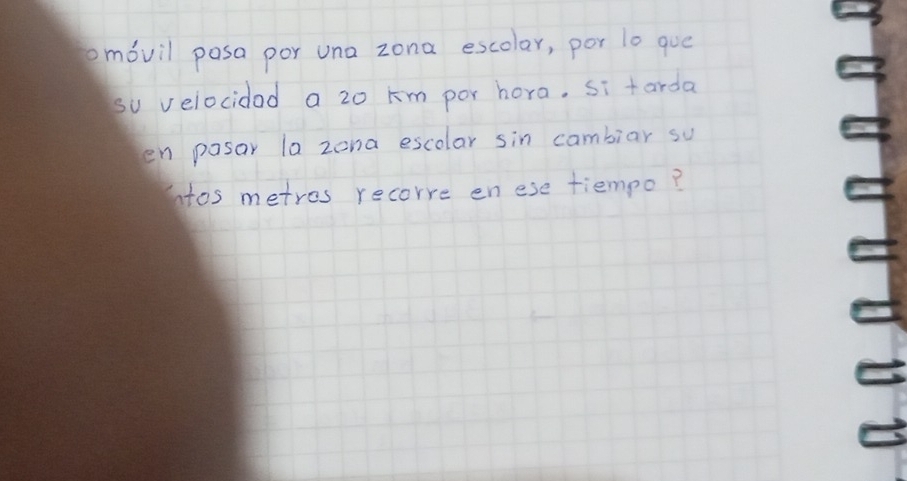 pasa por una zona escolar, por lo que
su velocidad a 20 km por hora. Si tarda
en pasar la zona escolar sin cambiar su
metros recorre en ese tiempo?